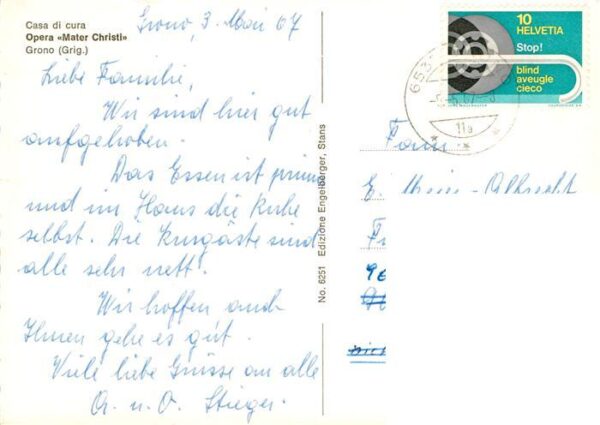 Casa di cura
Opera «Mater Christi»
Grono (Grig.)
Grono, 3. Mai 67
Liebe Familie,
Wir sind hier gut
aufgehoben.
Das Essen ist prima
und im Haus die Ruhe
selbst. Die Kurgäste sind
alle sehr nett.
Wir hoffen auch
Ihnen gehe es gut.
Viele liebe Grüsse an alle
A. u. O. Stieger.
No. 6251 Edizione Engelberger, Stans
10
HELVETIA
Stop!
blind
aveugle
cieco
653
11a
Fam.
E. -Albrecht